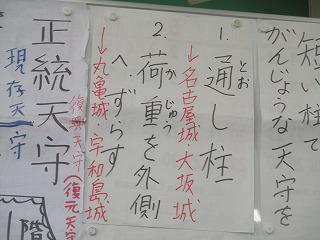 短い柱で
がんじょうな天守を
1. 通し柱
とお
→名古屋城 大坂城
2. 荷重を外側
かじゅう
へ、ずらす
→丸亀城・宇和島城
正統天守
復興天守
(復元天守
現存天守
階